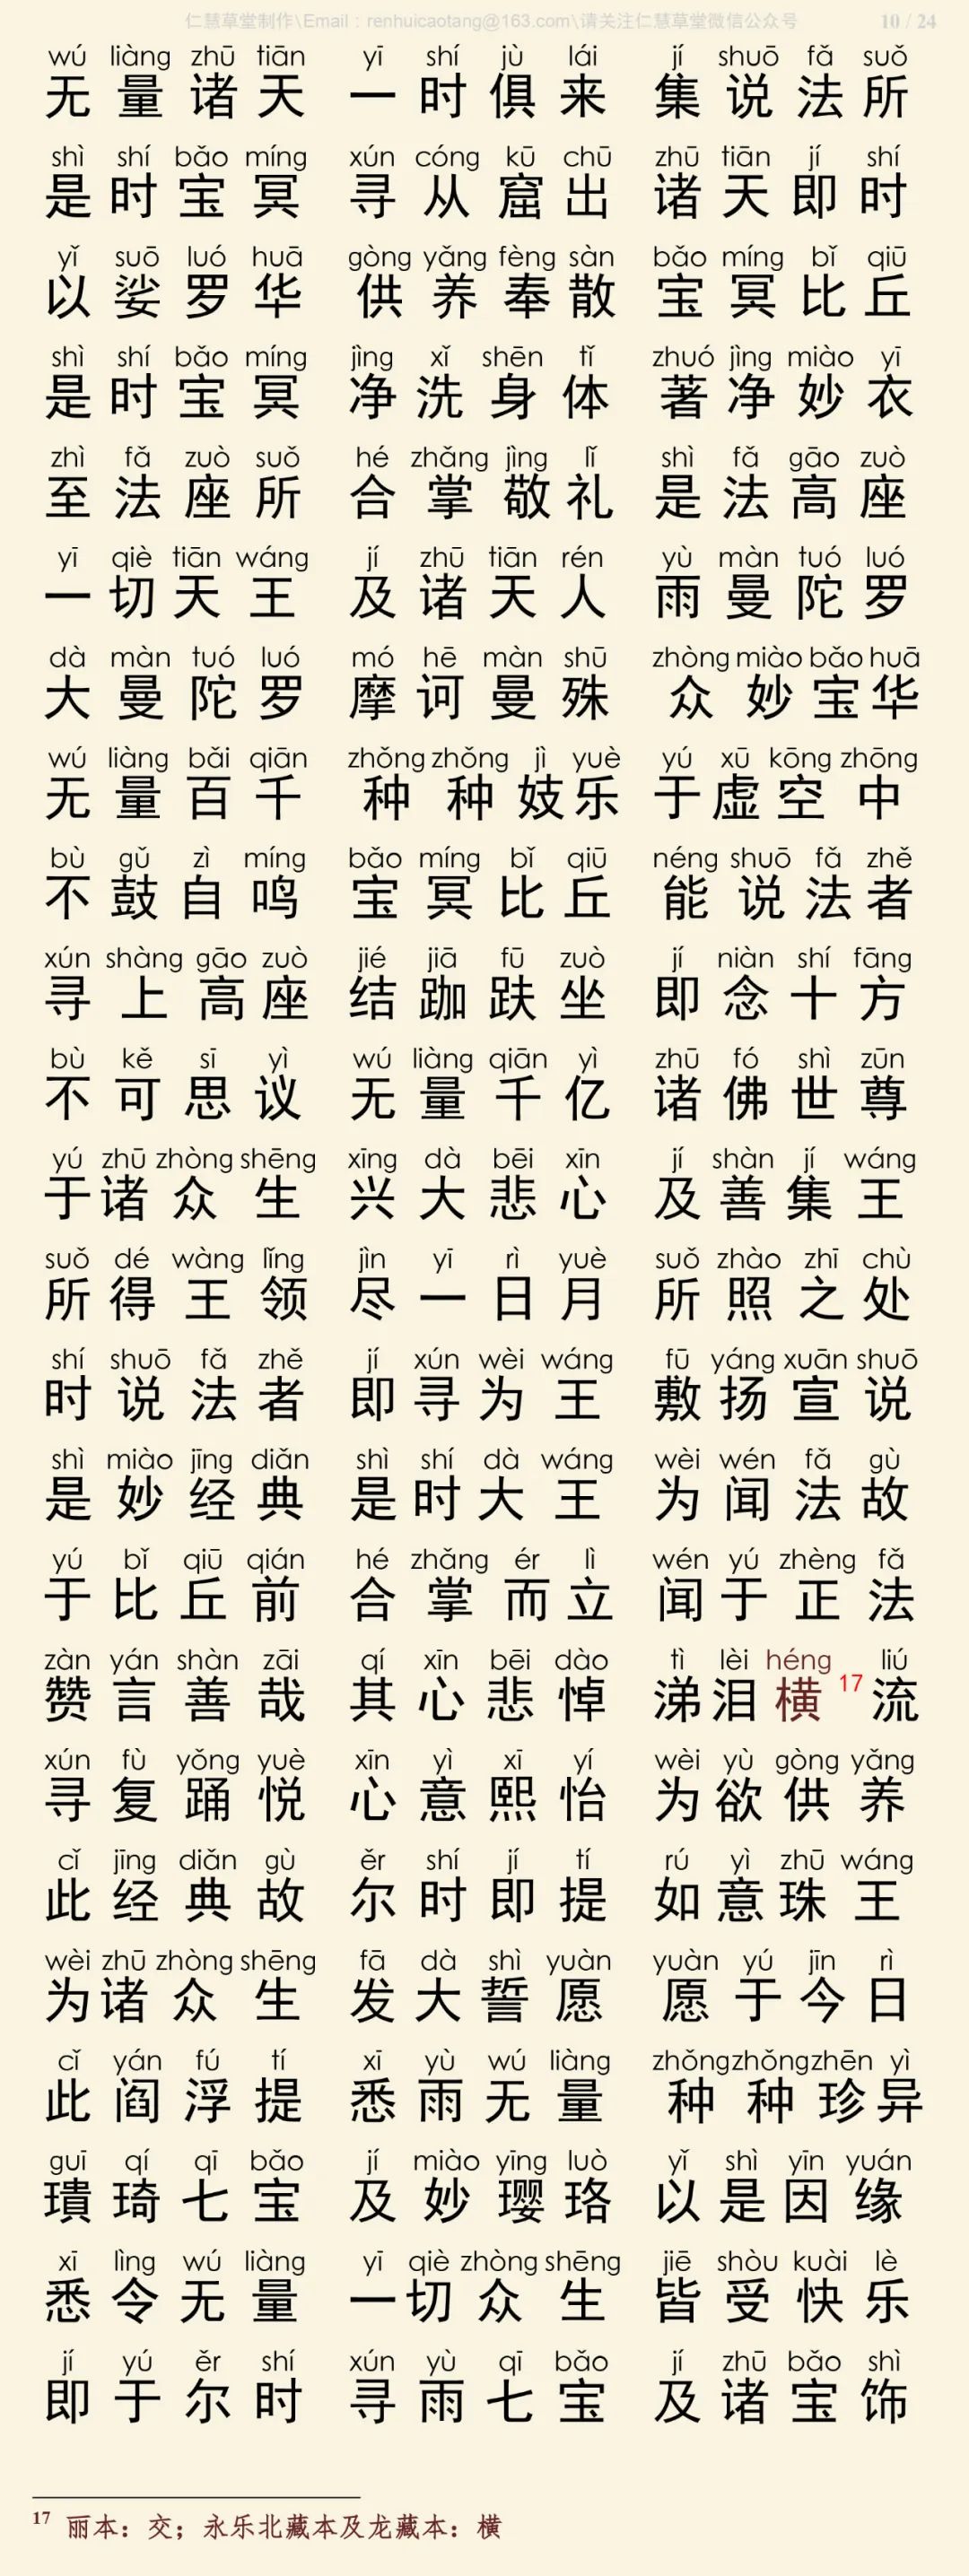 仁慧草堂制作\Email：renhuicaotang@163.com\请关注仁慧草堂微信公众号 10 / 24
wú liàng zhū tiān yī shí jù lái jí shuō fǎ suǒ
无量诸天 一时俱来 集说法所
shì shí bǎo míng xún cóng kū chū zhū tiān jí shí
是时宝冥 寻从窟出 诸天即时
yǐ suō luó huā gòng yǎng fèng sàn bǎo míng bǐ qiū
以娑罗华 供养奉散 宝冥比丘
shì shí bǎo míng jìng xǐ shēn tǐ zhuó jìng miào yī
是时宝冥 净洗身体 著净妙衣
zhì fǎ zuò suǒ hé zhǎng jìng lǐ shì fǎ gāo zuò
至法座所 合掌敬礼 是法高座
yī qiè tiān wáng jí zhū tiān rén yù màn tuó luó
一切天王 及诸天人 雨曼陀罗
dà màn tuó luó mó hē màn shū zhòng miào bǎo huā
大曼陀罗 摩诃曼殊 众妙宝华
wú liàng bǎi qiān zhǒng zhǒng jì yuè yú xū kōng zhōng
无量百千 种种妓乐 于虚空中
bù gǔ zì míng bǎo míng bǐ qiū néng shuō fǎ zhě
不鼓自鸣 宝冥比丘 能说法者
xún shàng gāo zuò jié jiā fū zuò jí niàn shí fāng
寻上高座 结跏趺坐 即念十方
bù kě sī yì wú liàng qiān yì zhū fó shì zūn
不可思议 无量千亿 诸佛世尊
yú zhū zhòng shēng xīng dà bēi xīn jí shàn jí wáng
于诸众生 兴大悲心 及善集王
suǒ dé wàng lǐng jìn yī rì yuè suǒ zhào zhī chù
所得王领 尽一日月 所照之处
shí shuō fǎ zhě jí xún wèi wáng fū yáng xuān shuō
时说法者 即寻为王 敷扬宣说
shì miào jīng diǎn shì shí dà wáng wèi wén fǎ gù
是妙经典 是时大王 为闻法故
yú bǐ qiū qián hé zhǎng ér lì wén yú zhèng fǎ
于比丘前 合掌而立 闻于正法
zàn yán shàn zāi qí xīn bēi dào tì lèi héng liú
赞言善哉 其心悲悼 涕泪横17流
xún fù yǒng yuè xīn yì xī yí wèi yù gòng yǎng
寻复踊悦 心意熙怡 为欲供养
cǐ jīng diǎn gù ěr shí jí tí rú yì zhū wáng
此经典故 尔时即提 如意珠王
wèi zhū zhòng shēng fā dà shì yuàn yuàn yú jīn rì
为诸众生 发大誓愿 愿于今日
cǐ yán fú tí xī yù wú liàng zhǒng zhǒng zhēn yì
此阎浮提 悉雨无量 种种珍异
guī qí qī bǎo jí miào yīng luò yǐ shì yīn yuán
瓌琦七宝 及妙璎珞 以是因缘
xī lìng wú liàng yī qiè zhòng shēng jiē shòu kuài lè
悉令无量 一切众生 皆受快乐
jí yú ěr shí xún yù qī bǎo jí zhū bǎo shì
即于尔时 寻雨七宝 及诸宝饰
17 丽本：交；永乐北藏本及龙藏本：横